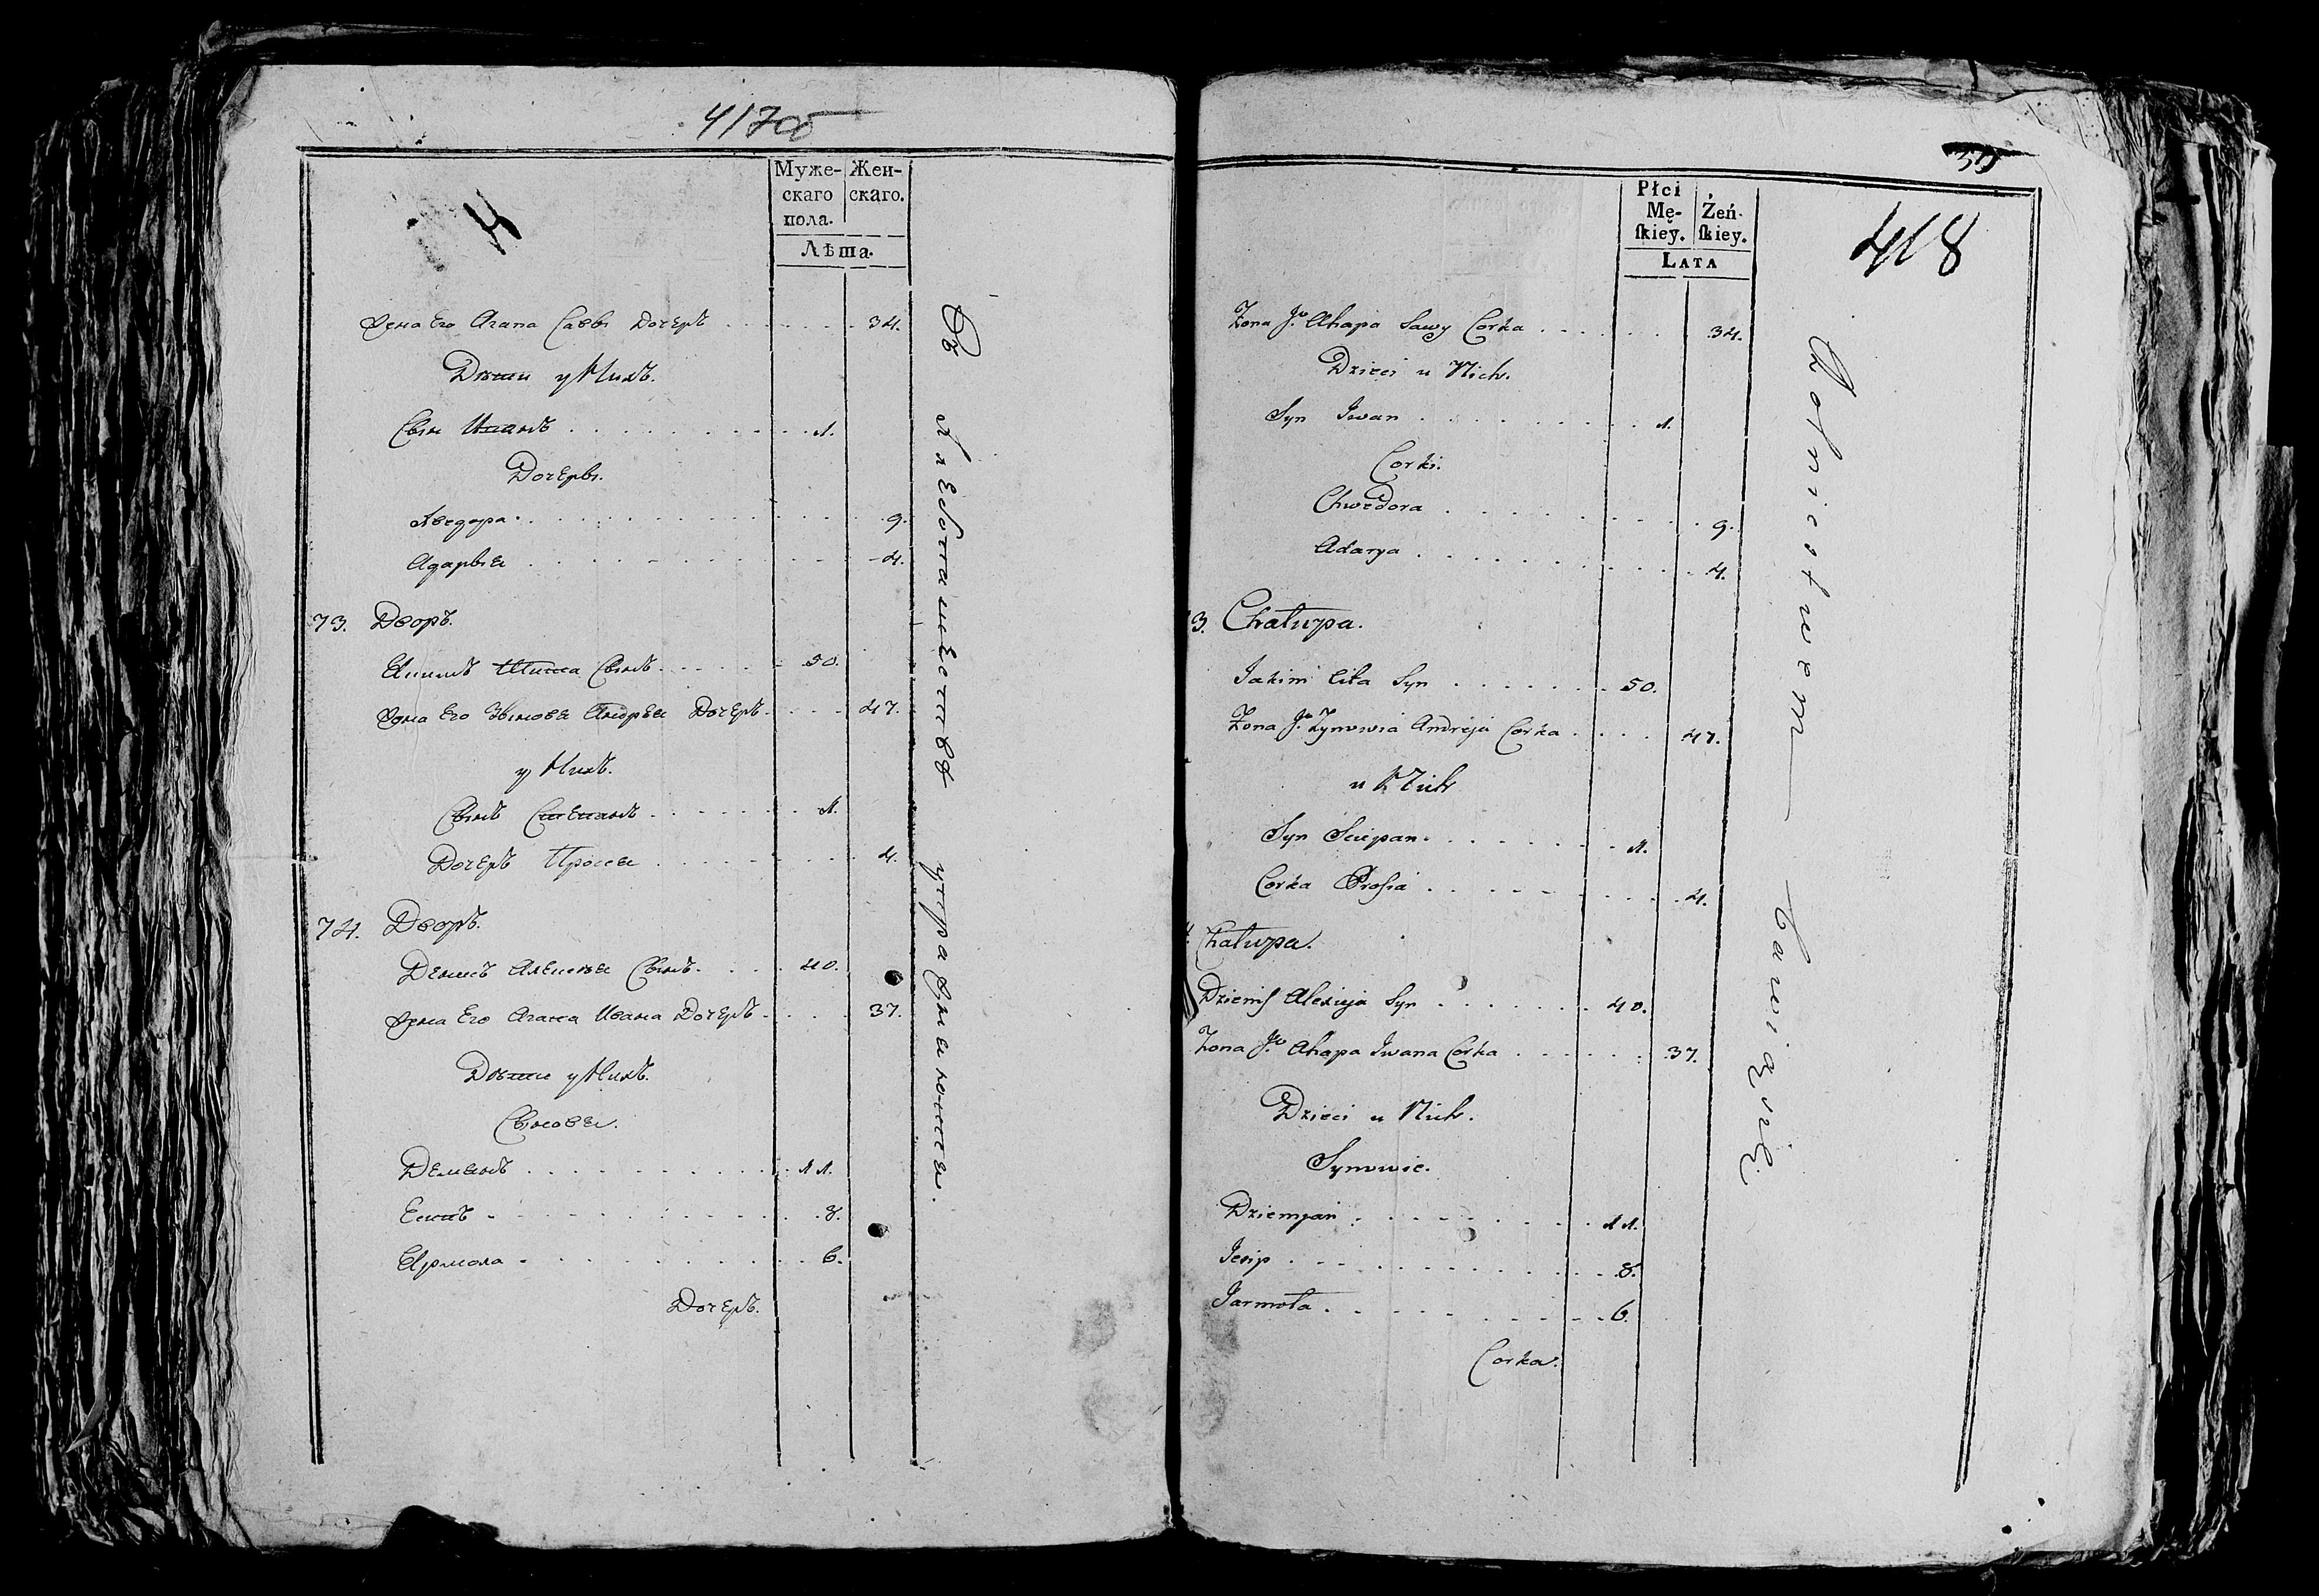 417об
4
Муже-
скаго
пола.
Жен-
скаго.
Лѣта.
Жена Его Агапа Саввы Дочерь 34.
Дѣти у Нихъ.
Сынъ Иванъ 1.
Дочеры.
Хведора 9.
Адарыя 4.
73. Дворъ.
Якимъ Тита Сынъ 50.
Жена Его Зыновея Андрея Дочерь 47.
у Нихъ.
Сынъ Степанъ 1.
Дочерь Прося 4.
74. Дворъ.
Денисъ Алексея Сынъ 40.
Жена Его Агапа Ивана Дочерь 37.
Дѣти у Нихъ.
Сыновя.
Демянъ 11.
Есипъ 8.
Ярмола 6.
Дочерь.
Въ хлебопашестве упражняются.
59
418
Płci
Mę-
ſkiey.
Żeń-
ſkiey.
LATA
Żona Jo Ahapa Sawy Corka 34.
Dzieci u Nich.
Syn Iwan 1.
Corki.
Chwedora 9.
Adarya 4.
3. Chałupa.
Jakim Cita Syn 50.
Żona Jo Zynowia Andreja Corka 47.
u Nich
Syn Sciepan 1.
Corka Prosia 4.
4. Chałupa.
Dzienis Alexieja Syn 40.
Żona Jo Ahapa Iwana Corka 37.
Dzieci u Nich.
Synowie.
Dziemjan 11.
Jesip 8.
Jarmoła 6.
Corka.
Rolnictwem bawią się